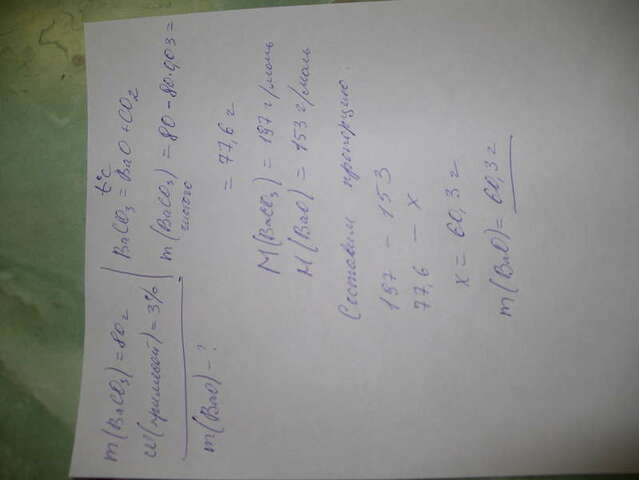 m(BaCO₃) = 80г
ω(примесей) = 3%
m(BaO) - ?
t°C
BaCO₃ = BaO + CO₂
m(BaCO₃) = 80 - 80·0,03 =
чистого
= 77,6 г
M(BaCO₃) = 197 г/моль
M(BaO) = 153 г/моль
Составим пропорцию:
197 - 153
77,6 - x
x = 60,3 г
m(BaO) = 60,3 г